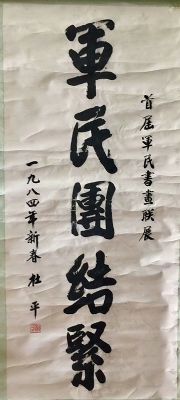 首届军民書畫联展
軍民團结緊
一九八四年新春 杜平